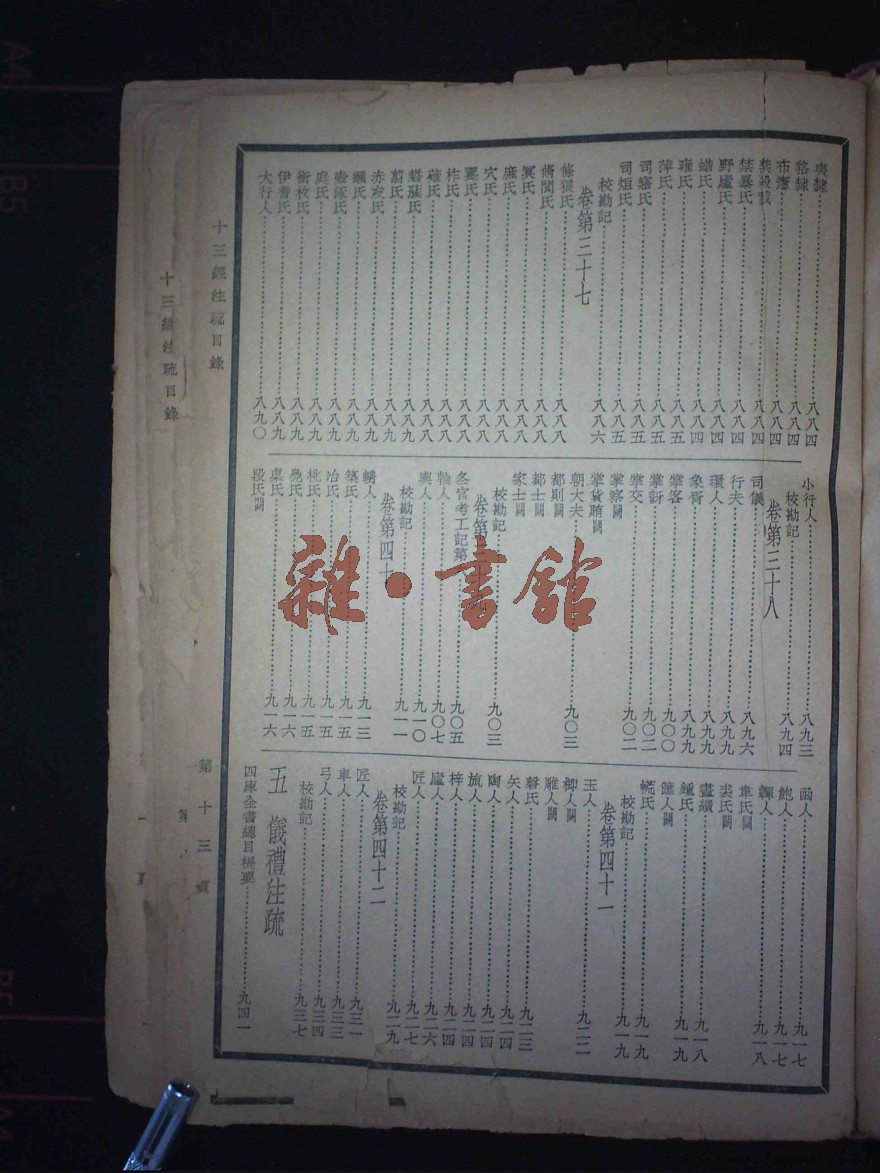 夷隸……八八四
貉隸……八八四
布憲……八八四
禁殺戮……八八四
禁暴氏……八八四
野廬氏……八八四
蜡氏……八八四
雍氏……八八五
萍氏……八八五
司寤氏……八八五
司烜氏……八八五
校勘記……八八六
卷第三十七
條狼氏……八八八
脩閭氏……八八八
冥氏……八八八
庶氏……八八八
穴氏……八八八
翨氏……八八八
柞氏……八八八
薙氏……八八八
硩蔟氏……八八九
翦氏……八八九
赤犮氏……八八九
蟈氏……八八九
壺涿氏……八八九
庭氏……八八九
銜枚氏……八八九
伊耆氏……八八九
大行人……八九〇
小行人……八九三
校勘記……八九四
卷第三十八
司儀……八九六
行夫……八九九
環人……八九九
象胥……八九九
掌客……九〇〇
掌訝……九〇二
掌交……九〇二
掌察闕
掌貨賄闕
朝大夫……九〇三
都則闕
都士闕
家士闕
校勘記……九〇三
卷第
冬官考工記第……九〇五
輪人……九〇七
輿人……九一〇
校勘記……九一一
卷第四十
輈人……九一三
築氏……九一五
冶氏……九一五
桃氏……九一五
鳧氏……九一六
㮚氏……九一六
段氏闕
函人……九一七
鮑人……九一七
韗人……九一八
韋氏闕
裘氏闕
畫繢……九一八
鍾氏……九一九
筐人闕
㡛氏……九一九
校勘記……九一九
卷第四十一
玉人……九二二
楖人闕
雕人闕
磬氏……九二三
矢人……九二四
陶人……九二四
瓬人……九二四
梓人……九二四
廬人……九二六
匠人……九二七
校勘記……九二九
卷第四十二
匠人……九三一
車人……九三三
弓人……九三四
校勘記……九三七
五 儀禮注疏
四庫全書總目提要……九四一
十三經注疏目錄
第十三頁
十三經注疏目錄
雜·書館